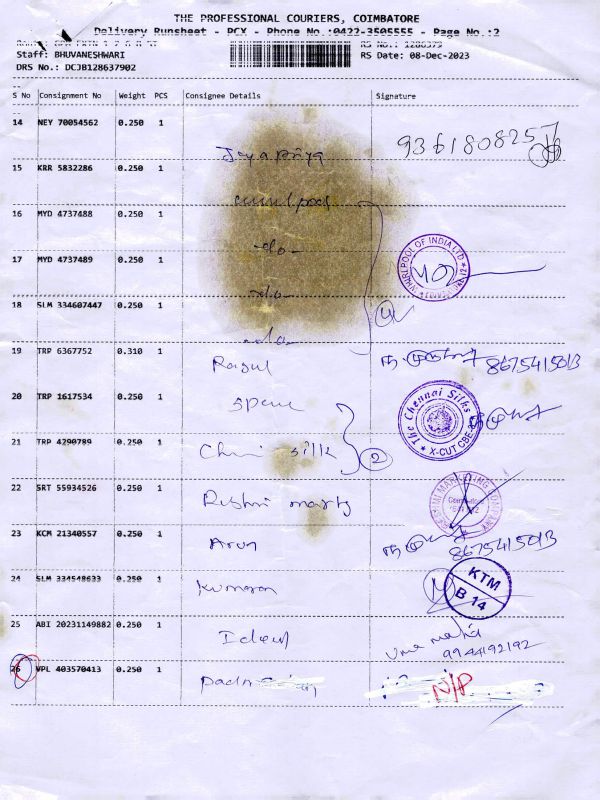 THE PROFESSIONAL COURIERS, COIMBATORE
Delivery Runsheet - PCX - Phone No.:0422-3505555 - Page No.:2
RS No.: 1280379
Staff: BHUVANESHWARI RS Date: 08-Dec-2023
DRS No.: DCJB128637902
S No Consignment No Weight PCS Consignee Details Signature
14 NEY 70054562 0.250 1 Jayapriya 9361808257
15 KRR 5832286 0.250 1
16 MYD 4737488 0.250 1 -do- WHIRLPOOL OF INDIA LTD
17 MYD 4737489 0.250 1 -do-
18 SLM 334607447 0.250 1 -do- 4
19 TRP 6367752 0.310 1 Ragul 8675415013
20 TRP 1617534 0.250 1 The Chennai Silks
21 TRP 4290789 0.250 1 silk 2 X-CUT CBE
22 SRT 55934526 0.250 1 MARKETING COMPANY
23 KCM 21340557 0.250 1 Arun 8675415013
24 SLM 334548633 0.250 1 Kumaran KTM B 14
25 ABI 20231149882 0.250 1 Uma mahi
9944192192
26 VPL 403570413 0.250 1 N/P